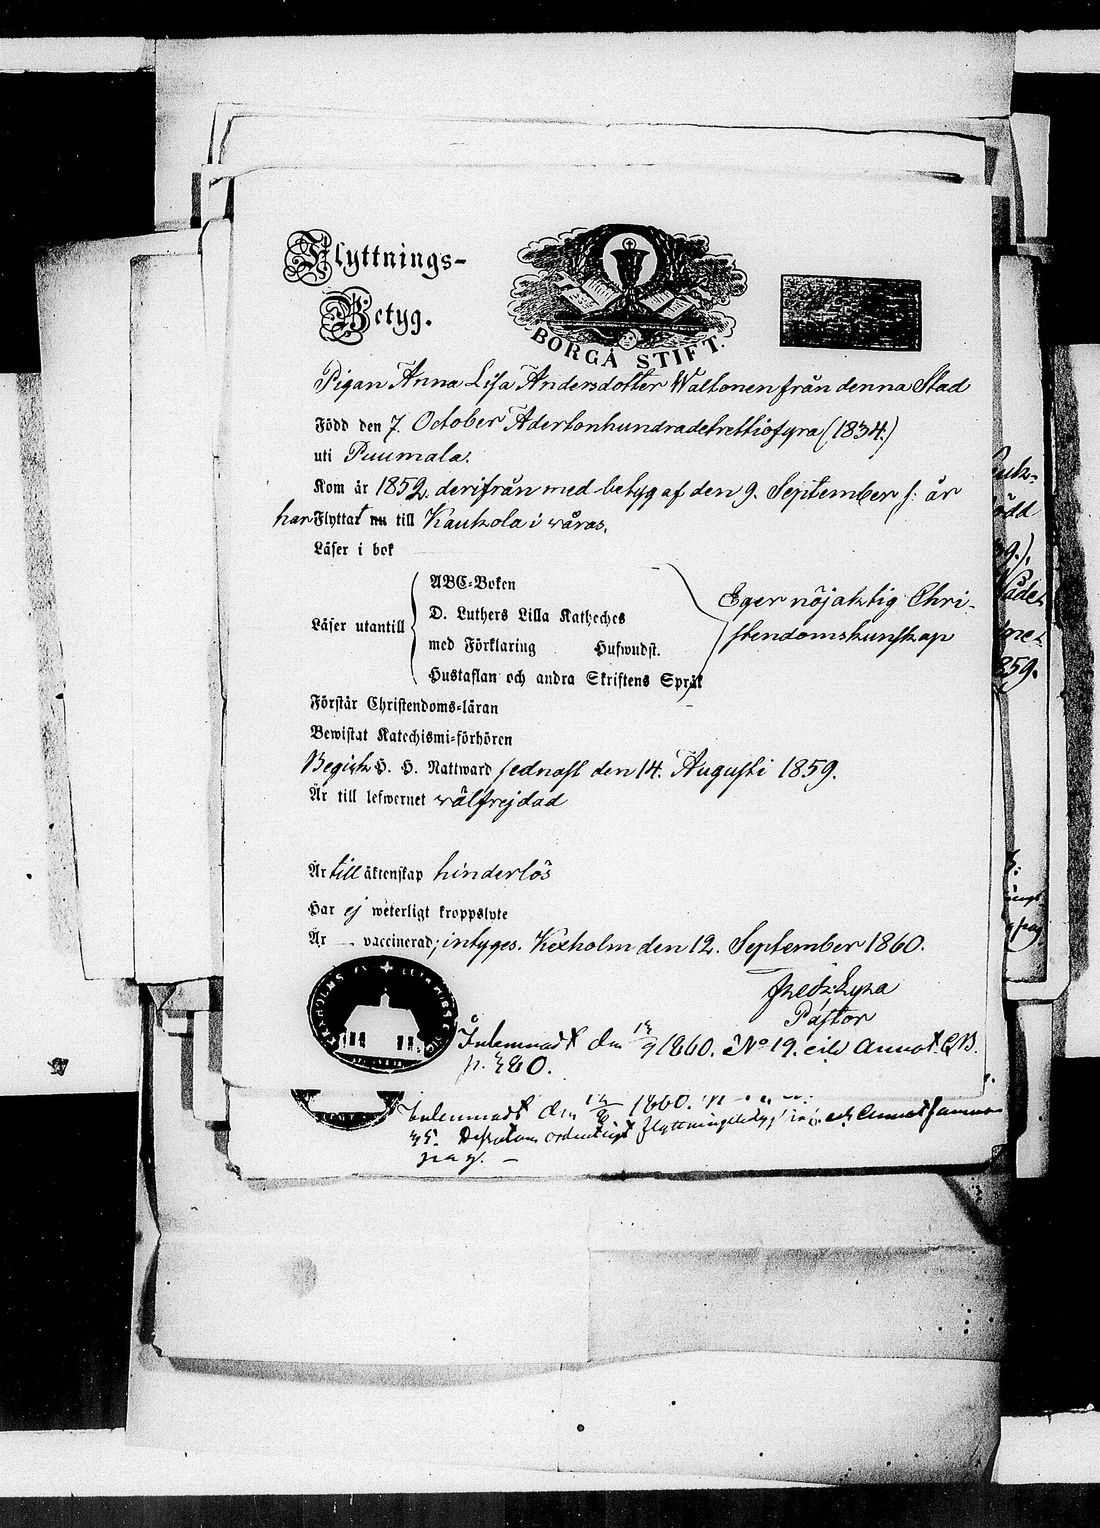 Flyttnings-
Betyg.
BORGÅ STIFT.
Pigan Anna Lisa Andersdotter Waltonen från denna Stad
Född den 7. October Adertonhundradetrettiofyra (1834.)
uti Puumala.
Kom år 1852. derifrån med betyg af den 9. September s: år
har Flyttat nu till Kaukola i våras.
Läser i bok
Läser utantill
ABC-Boken
D. Luthers Lilla Katheches
med Förklaring Hufwudst.
Hustaflan och andra Skriftens Språk
Eger nöjaktig Chri-
stendomskunskap
Förstår Christendoms-läran
Bewistat Katechismi-förhören
Begick H. H. Nattward sednast den 14. Augusti 1859.
Är till lefwernet välfrejdad
Är till äktenskap hinderlös
Har ej weterligt kroppslyte
Är vaccinerad; intyges. Kexholm den 12. September 1860.
Fredr. Lyra
Pastor
Inlemnadt den /9 1860. No 19. Annot. B.
p. 480.
Inlemnadt den 1860.
ordentligt
pag.
ödd
859.